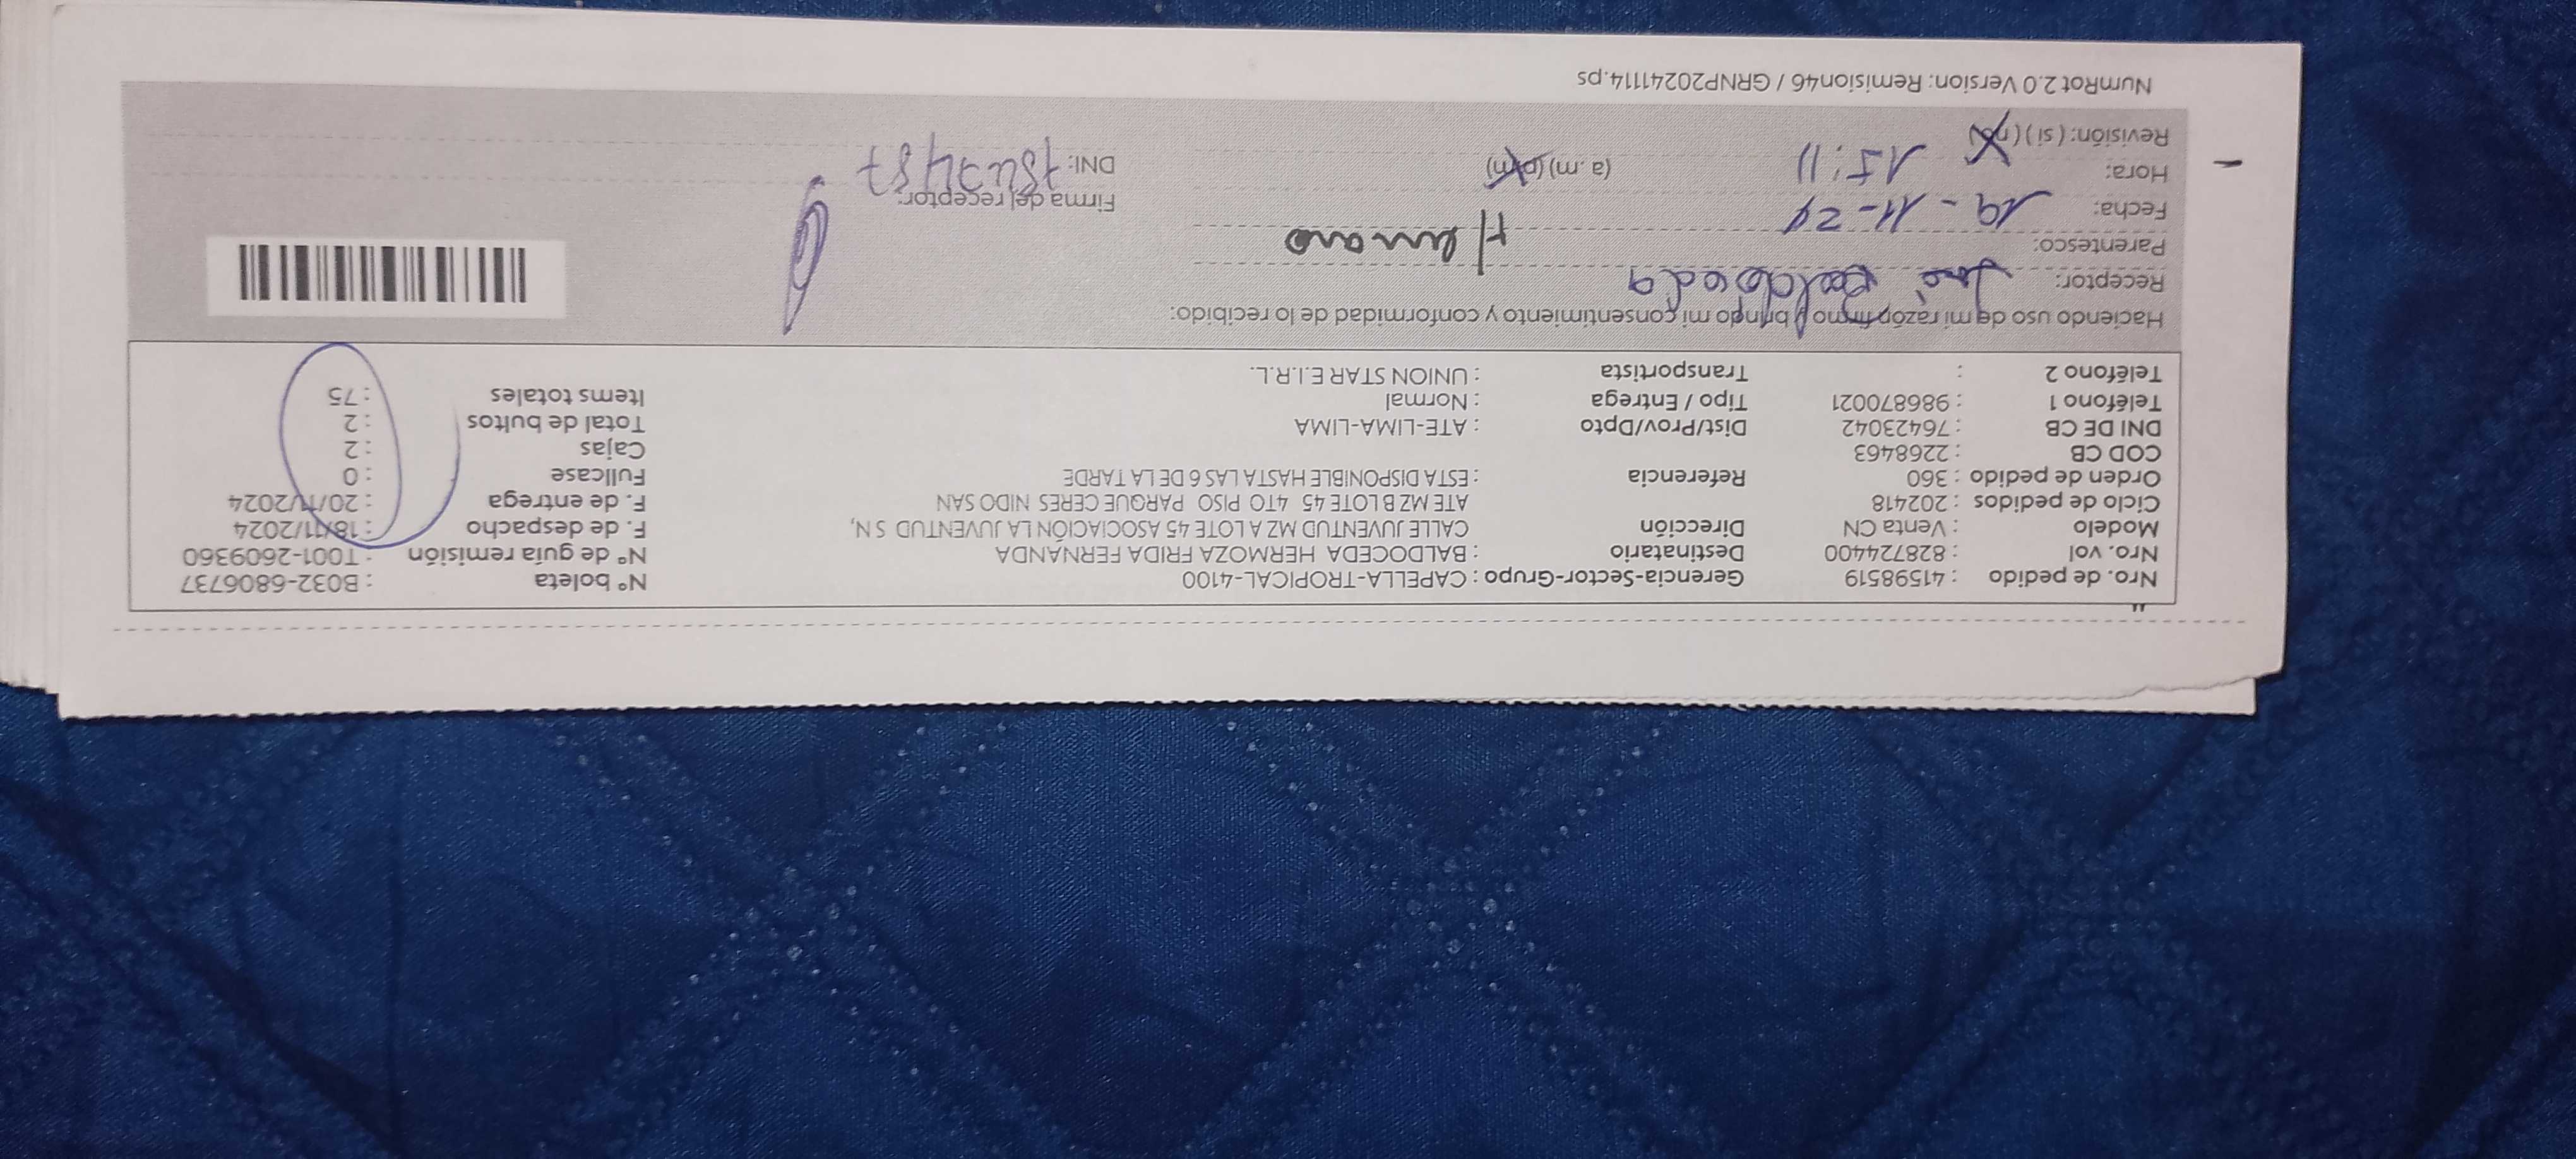 Nro. de pedido : 41598519 Gerencia-Sector-Grupo : CAPELLA-TROPICAL-4100 N° boleta : B032-6806737
Nro. vol : 828724400 Destinatario : BALDOCEDA HERMOZA FRIDA FERNANDA N° de guía remisión : T001-2609360
Modelo : Venta CN Dirección CALLE JUVENTUD MZ A LOTE 45 ASOCIACIÓN LA JUVENTUD S N, F. de despacho : 18/11/2024
Ciclo de pedidos : 202418 ATE MZ B LOTE 45 4TO PISO PARQUE CERES NIDO SAN F. de entrega : 20/11/2024
Orden de pedido : 360 Referencia : ESTA DISPONIBLE HASTA LAS 6 DE LA TARDE Fullcase : 0
COD CB : 2268463 Cajas : 2
DNI DE CB : 76423042 Dist/Prov/Dpto : ATE-LIMA-LIMA Total de bultos : 2
Teléfono 1 : 986870021 Tipo / Entrega : Normal Items totales : 75
Teléfono 2 : Transportista : UNION STAR E.I.R.L.
Haciendo uso de mi razón firmo y brindo mi consentimiento y conformidad de lo recibido:
Receptor: José Baldoceda
Parentesco: H/ermano
Fecha: 19-11-24 Firma del receptor:
Hora: 15:11 (a.m) (p.m) DNI:
Revisión: ( si ) ( no )
NumRot 2.0 Version: Remision46 / GRNP20241114.ps